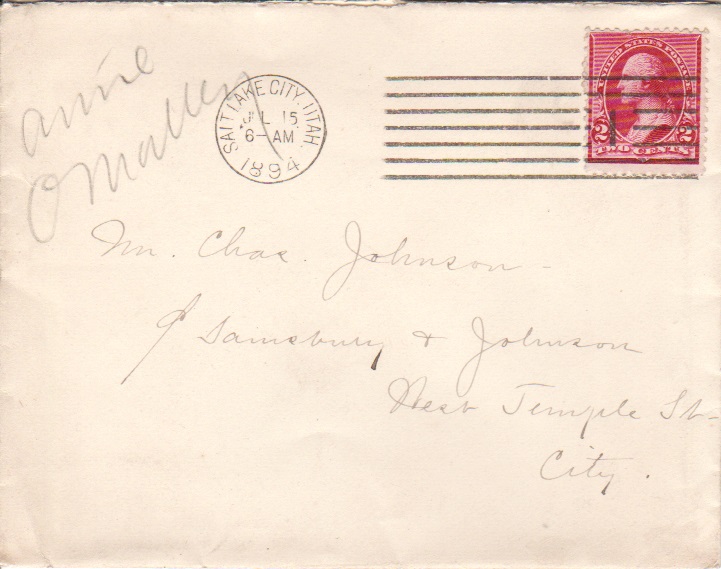 Anne
O'Malley
SALT LAKE CITY, UTAH.
JUL 15
6-AM
1894
UNITED STATES POSTAGE
2 2
TWO CENTS
Mr. Chas. Johnson -
c/o Sainsbury & Johnson
West Temple St-
City.